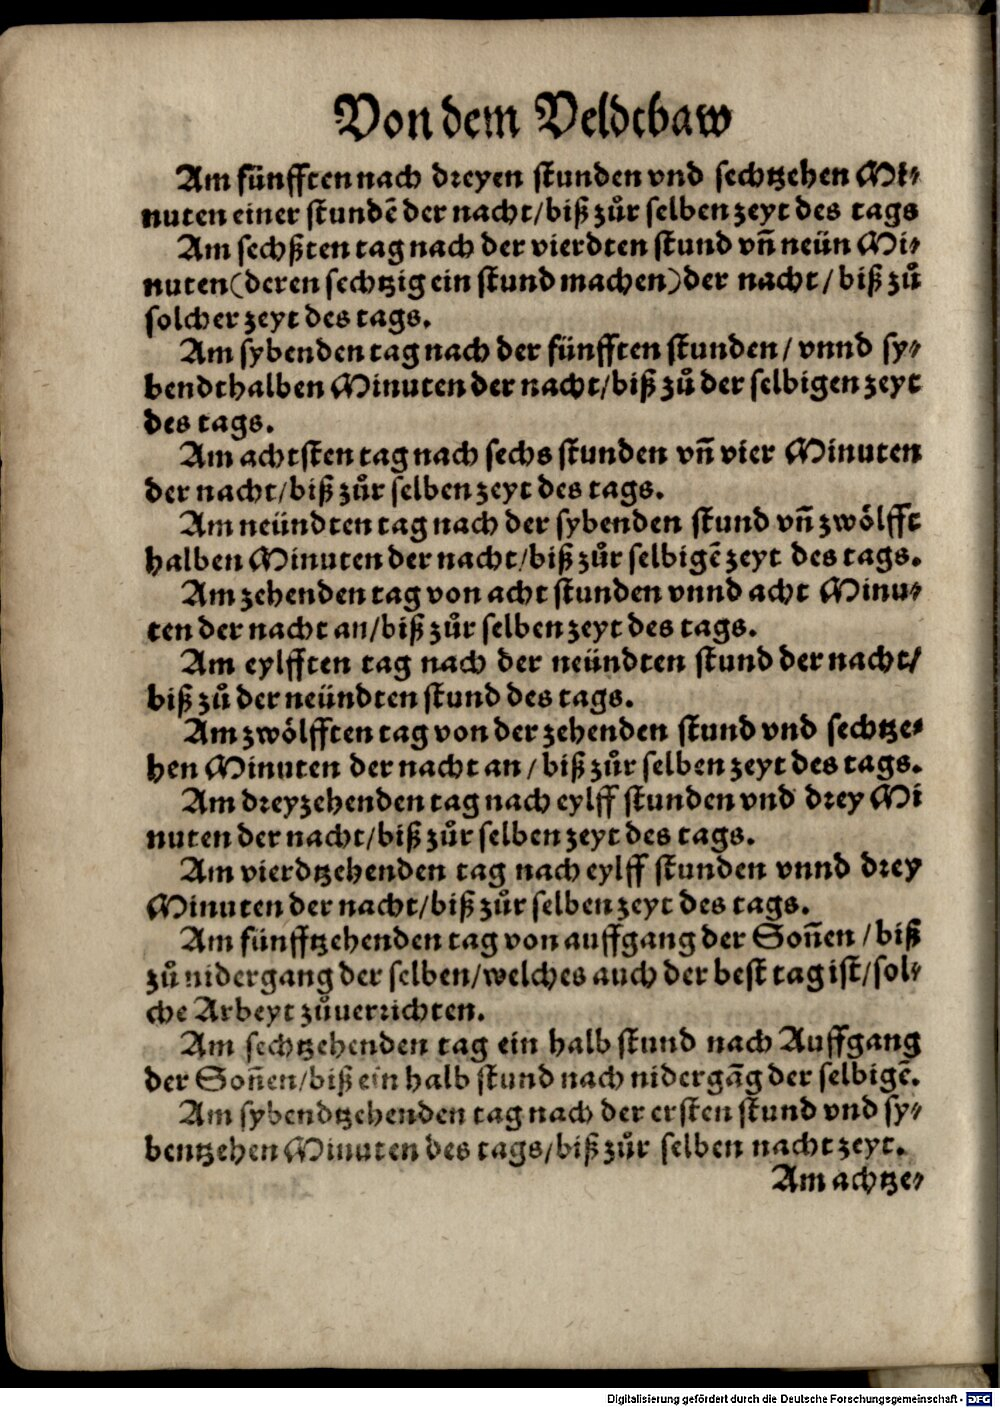 Von dem Veldtbaw
Am fünfften nach dreyen stunden vnd sechtzehen Mi⸗
nuten einer stundẽ der nacht/biß zůr selben zeyt des tags
Am sechßten tag nach der vierdten stund vñ neün Mi⸗
nuten(deren sechtzig ein stund machen)der nacht/ biß zů
solcher zeyt des tags.
Am sybenden tag nach der fünfften stunden/ vnnd sy⸗
bendthalben Minuten der nacht/biß zů der selbigen zeyt
des tags.
Am achtsten tag nach sechs stunden vñ vier Minuten
der nacht/biß zůr selben zeyt des tags.
Am neündten tag nach der sybenden stund vñ zwölfft
halben Minuten der nacht/biß zůr selbigẽ zeyt des tags.
Am zehenden tag von acht stunden vnnd acht Minu⸗
ten der nacht an/biß zůr selben zeyt des tags.
Am eylfften tag nach der neündten stund der nacht/
biß zů der neündten stund des tags.
Am zwölfften tag von der zehenden stund vnd sechtze⸗
hen Minuten der nacht an/ biß zůr selben zeyt des tags.
Am dreyzehenden tag nach eylff stunden vnd drey Mi
nuten der nacht/biß zůr selben zeyt des tags.
Am vierdtzehenden tag nach eylff stunden vnnd drey
Minuten der nacht/biß zůr selben zeyt des tags.
Am fünfftzehenden tag von auffgang der Soñen/biß
zů nidergang der selben/welches auch der best tag ist/sol⸗
che Arbeyt zůuerrichten.
Am sechtzehenden tag ein halb stund nach Auffgang
der Soñen/biß ein halb stund nach nidergãg der selbigẽ.
Am sybendtzehenden tag nach der ersten stund vnd sy⸗
bentzehen Minuten des tags/biß zůr selben nacht zeyt.
Am achtze⸗
Digitalisierung gefördert durch die Deutsche Forschungsgemeinschaft - DFG